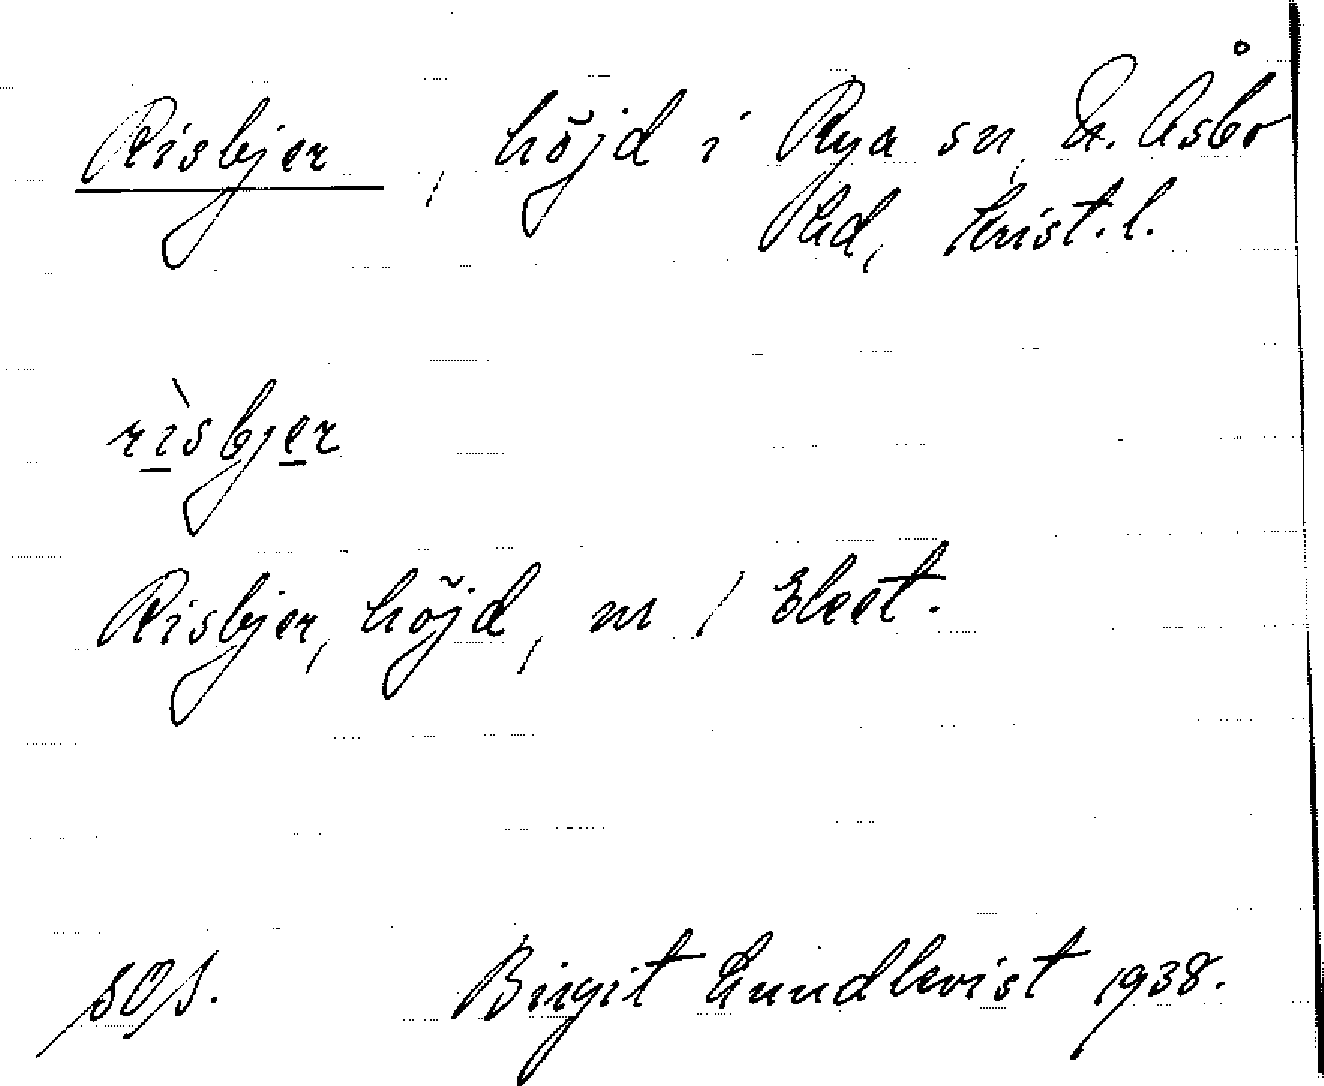 Risbjer, höjd i Rya sn, N. Åsbo
hd, Krist. l.
rìsbjer
Risbjer, höjd, m /
SOS. Birgit Lundkvist 1938.